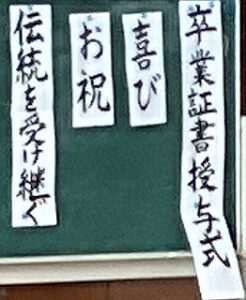 卒業証書授与式
喜び
お祝
伝統を受け継ぐ